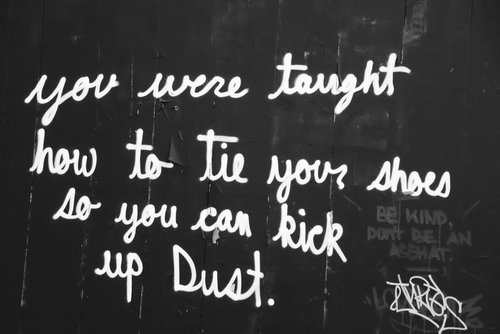 you were taught
how to tie your shoes
so you can kick
up Dust.
BE KIND,
DON'T BE AN
ASSHAT.